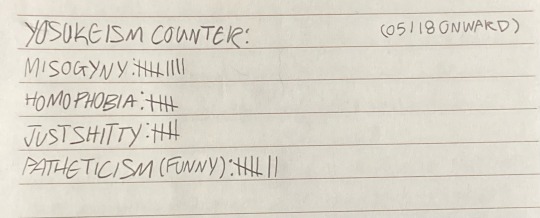 YOSUKEISM COUNTER: (05/18 ONWARD)
MISOGYNY: 卌||||
HOMOPHOBIA: 卌
JUST SHITTY: 卌
PATHETICISM (FUNNY): 卌||